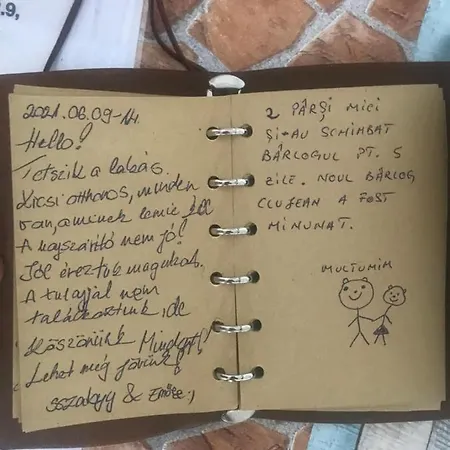 .9,
2021.06.09-14.
Hello!
Tetszik a lakás.
Kicsi otthonos, minden
van, aminek lennie kell
A hajszárító nem jó!
Jól éreztük magunkat,
A tulajjal nem
találkoztunk, de
Köszönünk Mindent!
Lehet még jövünk!
sszakyy & Emőke :)
2 PÂRȘI MICI
ȘI-AU SCHIMBAT
BÂRLOGUL PT. 5
ZILE. NOUL BÂRLOG
CLUJEAN A FOST
MINUNAT.
MULTUMIM